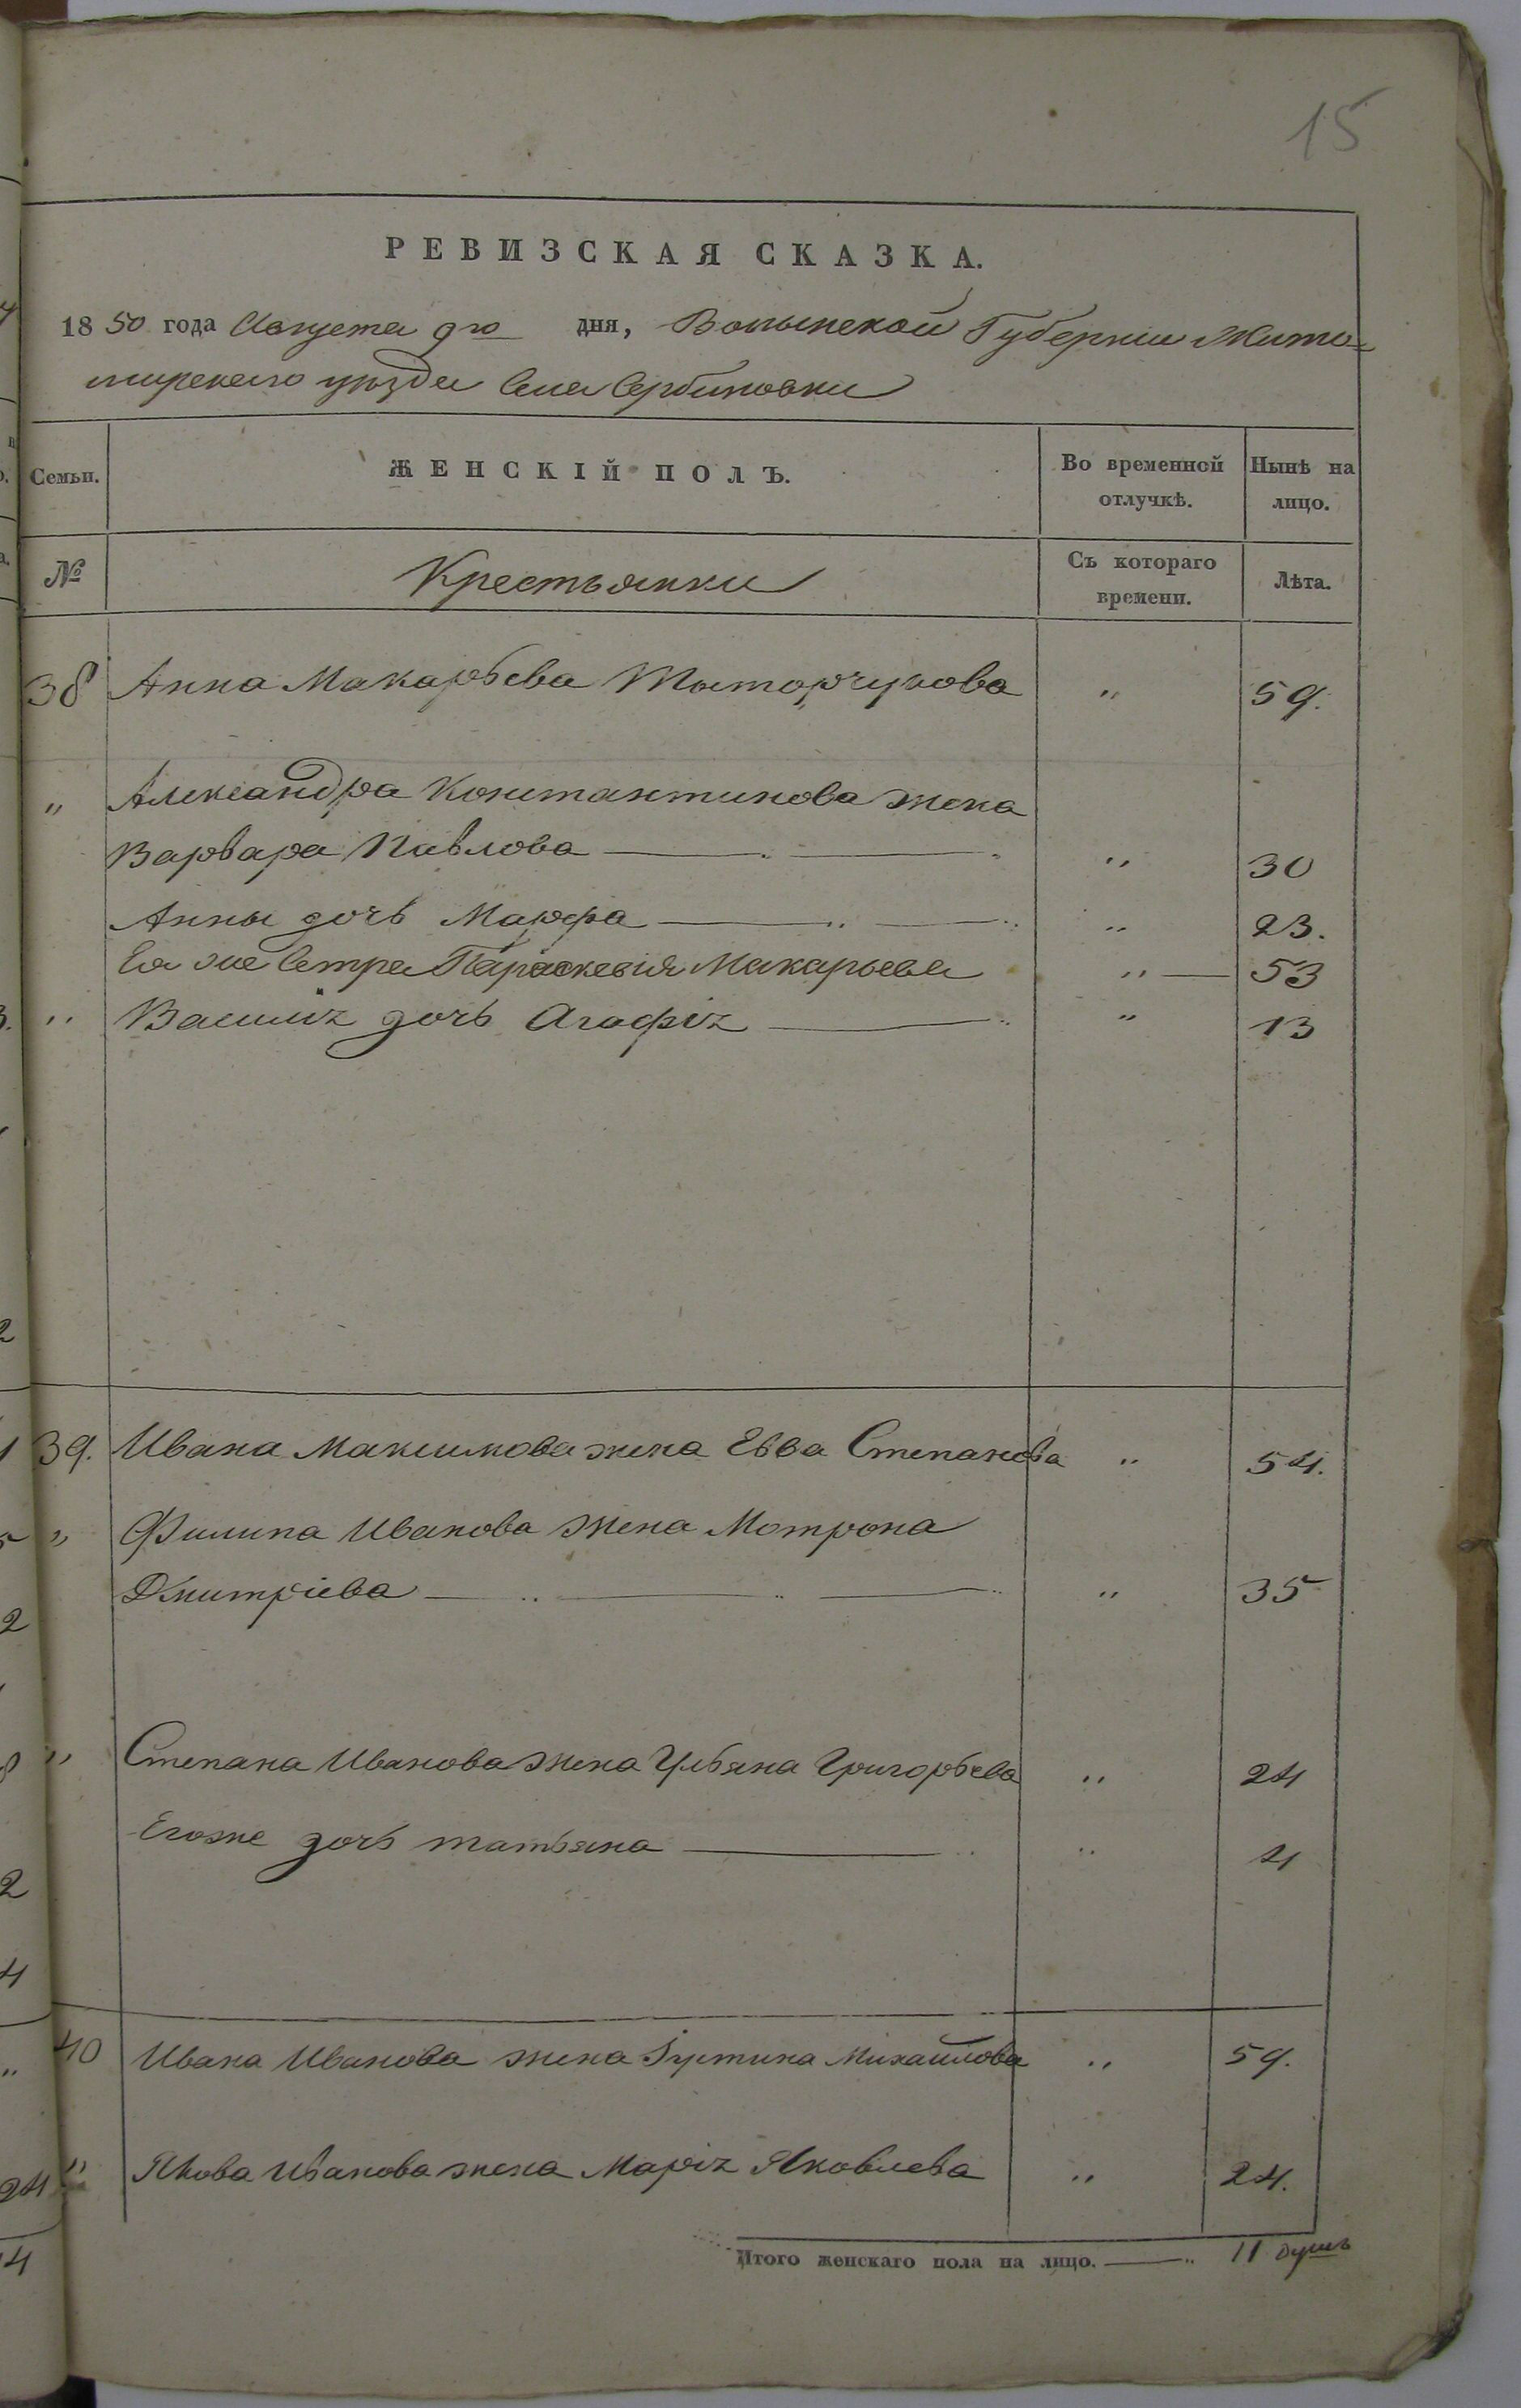 15
РЕВИЗСКАЯ СКАЗКА.
1850 года Августа 9го дня, Волынской Губернии Жито=
мирскаго уѣзда Села Сербиновки
Семьи. ЖЕНСКІЙ ПОЛЪ. Во временной отлучкѣ. Нынѣ на лицо.
№ Крестьянки Съ котораго времени. Лѣта.
38 Анна Макарьева Тыторчукова " 59.
" Александра Константинова жена
Варвара Павлова " 30
Анны дочь Марфа " 23.
Ея же Сетра Параскевія Макарьева " 53
" Василія дочь Агафія " 13
39. Ивана Максимова жена Евва Степанова " 54.
" Филипа Иванова жена Мотрона
Дмитріева " 35
" Степана Иванова жена Ульяна Григорьева " 24
Егоже дочь татьяна " 4
40 Ивана Иванова жена Іустина Михайлова " 59.
" Якова Иванова жена Марія Яковлева " 24.
Итого женскаго пола на лицо. 11 душъ